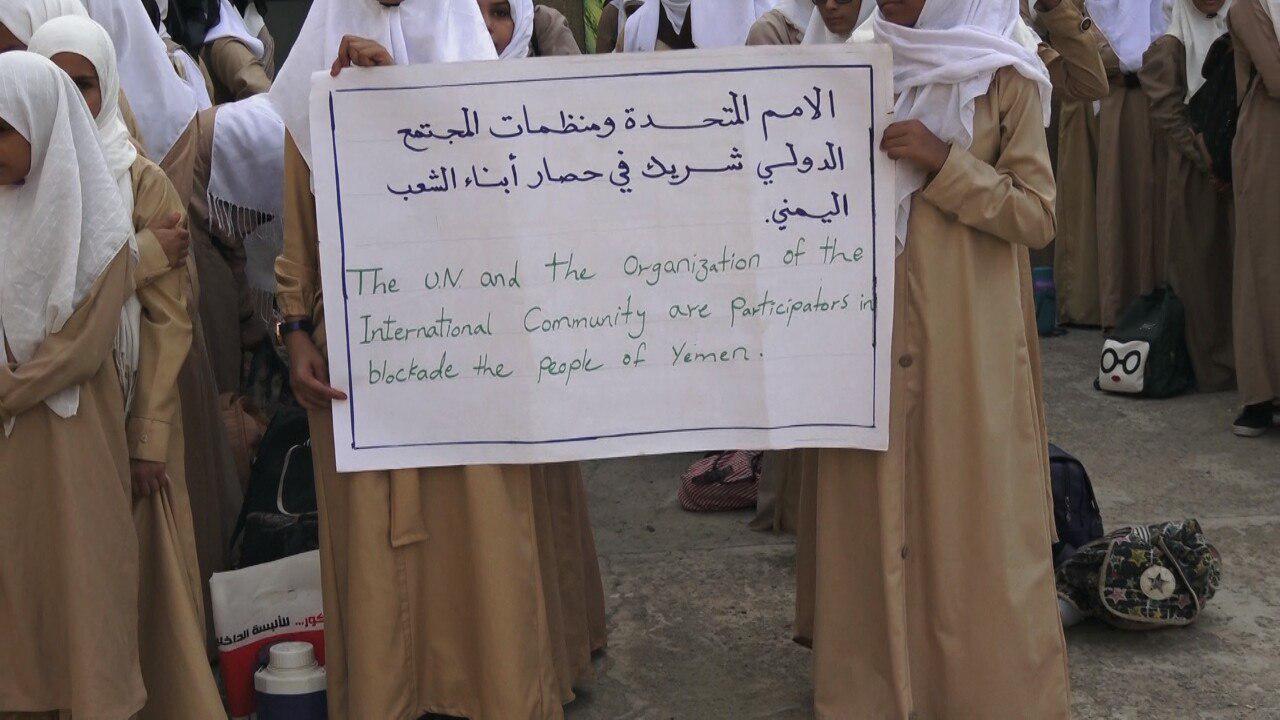 الامم المتحدة ومنظمات المجتمع
الدولي شريك في حصار أبناء الشعب
اليمني.
The UN and the Organization of the
International Community are Participators in
blockade the people of Yemen.
للألبسة الداخلية